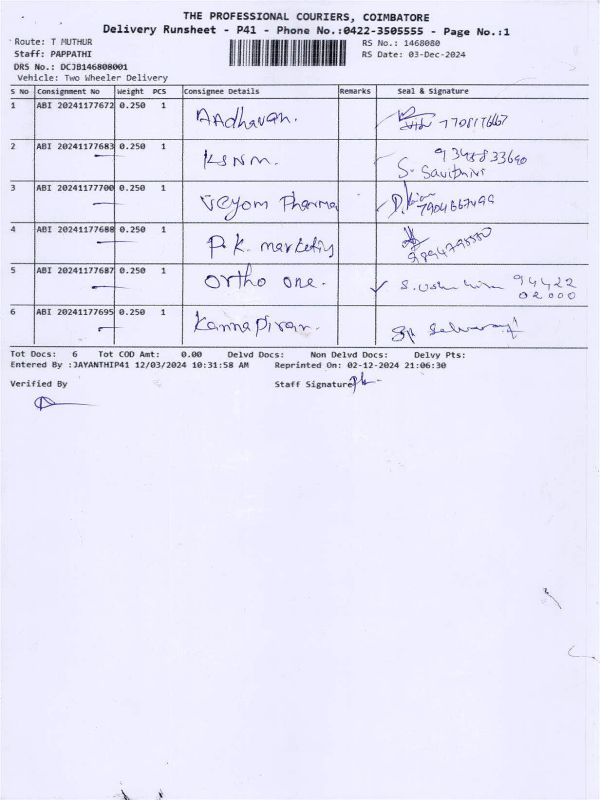 THE PROFESSIONAL COURIERS, COIMBATORE
Delivery Runsheet - P41 - Phone No.:0422-3505555 - Page No.:1
Route: T MUTHUR RS No.: 1468080
Staff: PAPPATHI RS Date: 03-Dec-2024
DRS No.: DCJB146808001
Vehicle: Two Wheeler Delivery
S No Consignment No Weight PCS Consignee Details Remarks Seal & Signature
1 ABI 20241177672 0.250 1 AAdhavan.
2 ABI 20241177683 0.250 1 KSNM.
S. Savithiri
3 ABI 20241177700 0.250 1 Veyom Pharma
4 ABI 20241177688 0.250 1 P.K. marketing
5 ABI 20241177687 0.250 1 Ortho one. 94422
02000
6 ABI 20241177695 0.250 1 Kannapiran.
Tot Docs: 6 Tot COD Amt: 0.00 Delvd Docs: Non Delvd Docs: Delvy Pts:
Entered By :JAYANTHIP41 12/03/2024 10:31:58 AM Reprinted On: 02-12-2024 21:06:30
Verified By Staff Signature